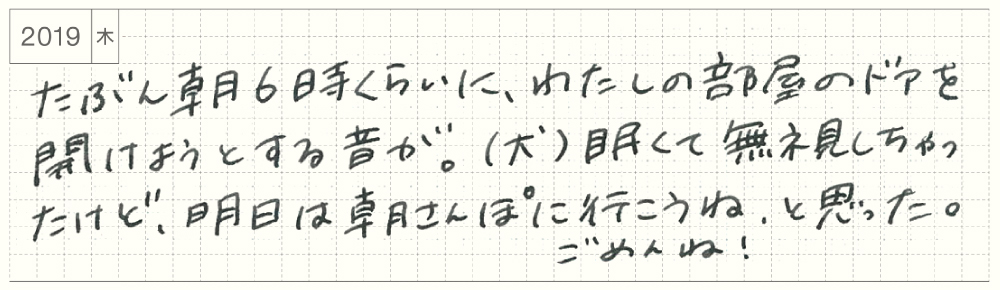 2019 木
たぶん朝6時くらいに、わたしの部屋のドアを
開けようとする音が。(犬)眠くて無視しちゃっ
たけど、明日は朝さんぽに行こうね、と思った。
ごめんね!